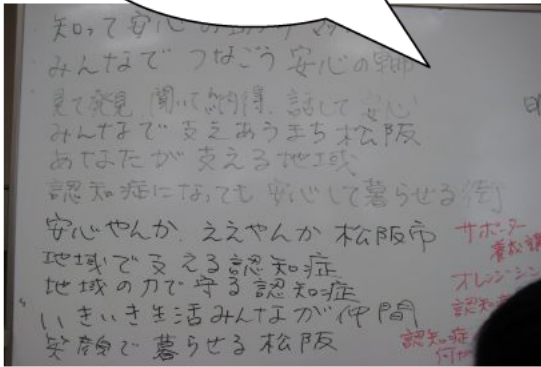 知って安心
みんなで つなごう 安心の郷
見て発見 聞いて納得 話して安心
みんなで支えあうまち松阪
あなたが支える地域
認知症になっても安心して暮らせる街
安心やんか、ええやんか 松阪市
サポーター
地域で支える認知症
地域の力で守る認知症
オレンジ
いきいき生活みんなが仲間
認知
笑顔で暮らせる松阪
認知症